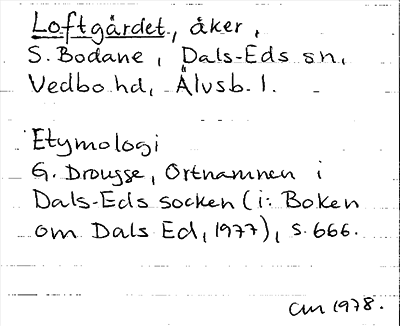 Loftgärdet, åker,
S. Bodane, Dals-Eds sn,
Vedbo hd, Älvsb. l.
Etymologi
G. Drougge, Ortnamnen i
Dals-Eds socken (i: Boken
om Dals Ed, 1977), s. 666.
CM 1978.